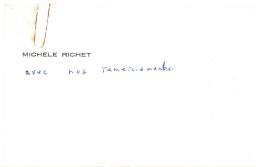 MICHÈLE RICHET
avec nos remerciements